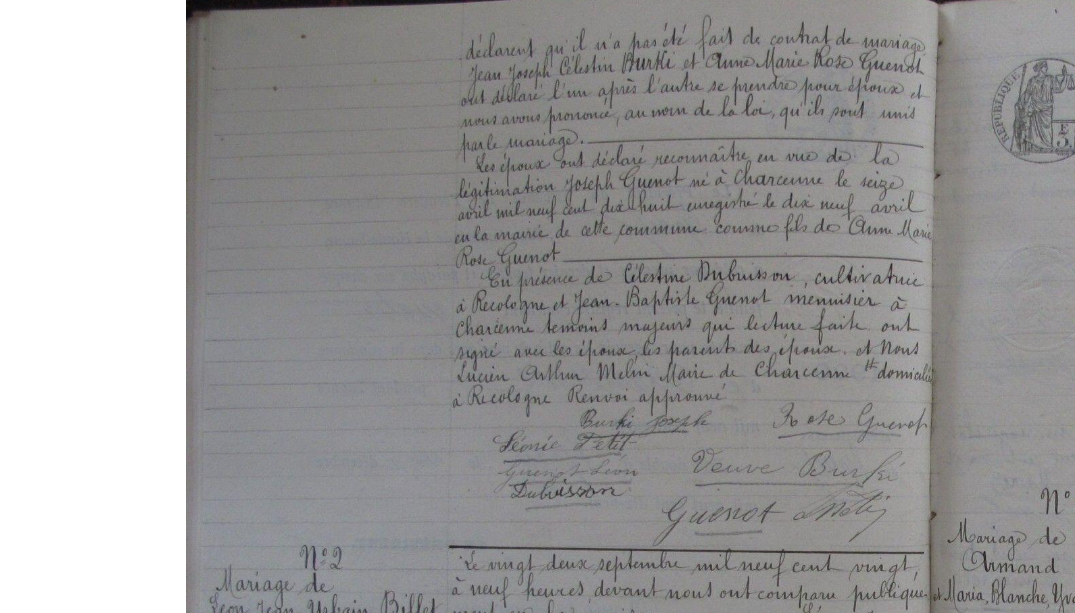 déclarent qu'il n'a pas été fait de contrat de mariage
Jean Joseph Célestin Burki et Anne Marie Rose Guenot
ont déclaré l'un après l'autre se prendre pour époux et
nous avons prononcé, au nom de la loi, qu'ils sont unis
par le mariage.
Les époux ont déclaré reconnaître, en vue de la
légitimation Joseph Guenot né à Charcenne le seize
avril mil neuf cent dix huit enregistré le dix neuf avril
en la mairie de cette commune comme fils de Anne Marie
Rose Guenot
En présence de Célestine Dubuisson, cultivatrice
à Recologne et Jean-Baptiste Guenot menuisier à
Charcenne temoins majeurs qui lecture faite ont
signé avec les époux, les parent des époux. et Nous
Lucien Arthur Melin Maire de Charcenne domiciliée
à Recologne Renvoi approuvé
Burki Joseph Rose Guenot
Léonie Petit
Guenot Léon Veuve Burki
Dubuisson
Guenot
N° 2
Mariage de
Léon Jean Urbain Billet
Le vingt deux septembre mil neuf cent vingt,
à neuf heures, devant nous ont comparu publique-
REPUBLIQUE
N°
Mariage de
Armand
et Maria, Blanche, Yva